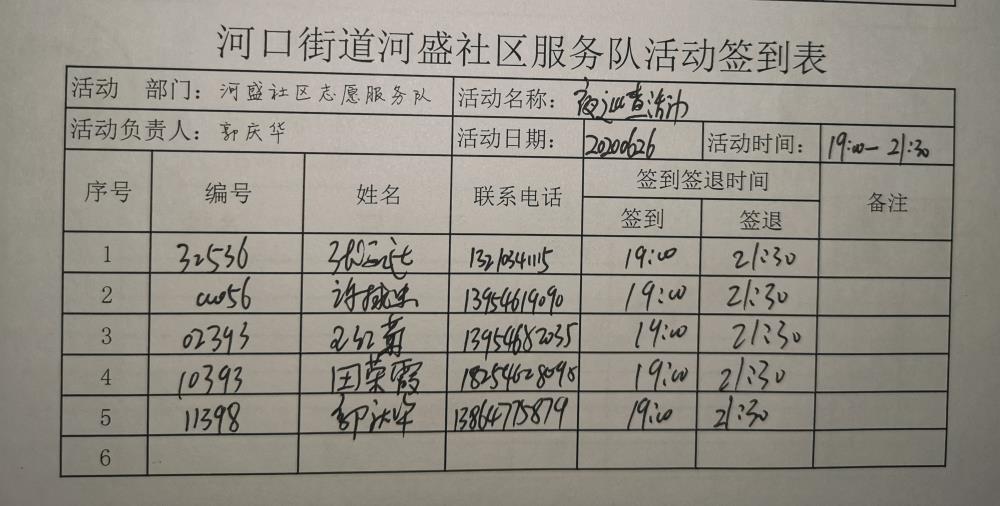 河口街道河盛社区服务队活动签到表
活动 部门：河盛社区志愿服务队 活动名称：夜巡查活动
活动负责人：郭庆华 活动日期：20200626 活动时间：19:00-21:30
序号 编号 姓名 联系电话 签到签退时间 备注
签到 签退
1 32536 13210341115 19:00 21:30
2 00056 13954619090 19:00 21:30
3 02393 王红菊 13954682035 19:00 21:30
4 10393 田荣霞 19:00 21:30
5 11398 郭庆华 13864775879 19:00 21:30
6